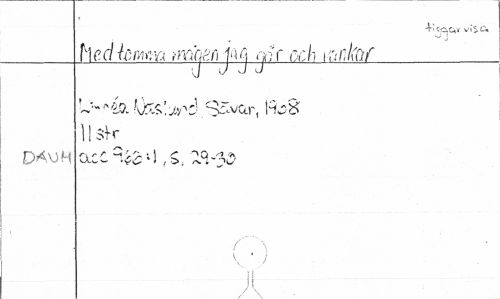 tiggarvisa
Med tomma magen jag går och vankar
Linnéa Näslund, Sävar, 1908
11 str
DAUM acc 963:1, s. 29-30